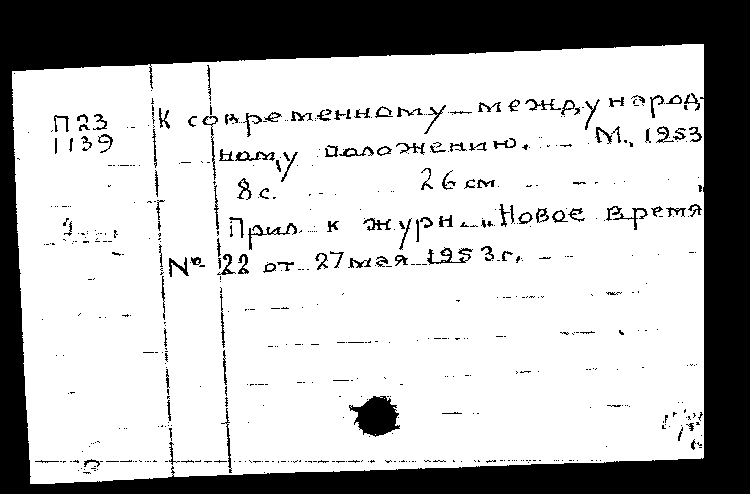 П23
1139
К современному международ-
ному положению. М., 1953
8 с. 26 см
Прил. к журн. "Новое время"
№ 22 от 27 мая 1953 г.